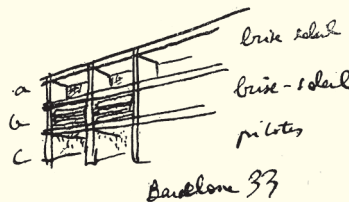 a
b
c
brise soleil
brise-soleil
pilotis
Barcelone 33